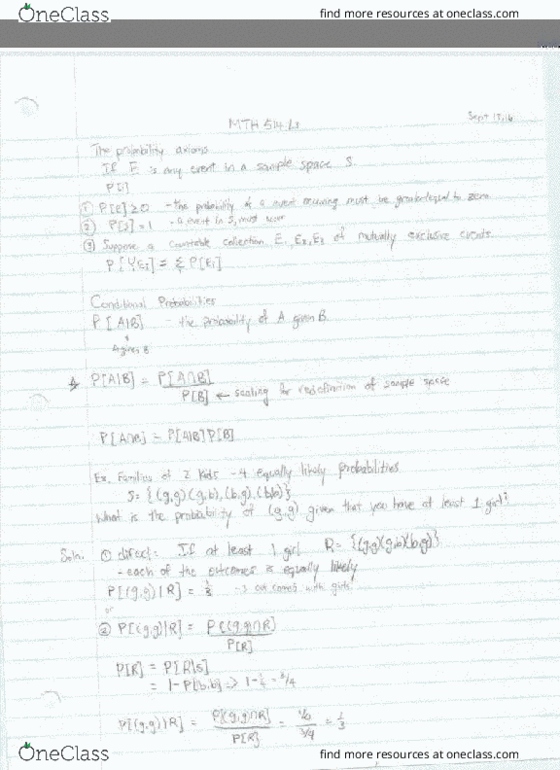 OneClass
find more resources at oneclass.com
MTH 514 L3
Sept 13, 16
The probability axioms
If E is any event in a sample space S.
P[E]
① P[E] ≥ 0 - the probability of a event occuring must be greater/equal to zero
② P[S] = 1 - a event in S, must occur
③ Suppose a countable collection E₁, E₂, E₃ of mutually exclusive events.
P[∪Ei] = Σ P[Ei]
Conditional Probabilities
P[A|B] - the probability of A given B
A given B
P[A|B] = P[A∩B]
P[B] ← scaling for redefinition of sample space
P[A∩B] = P[A|B] P[B]
Ex. Families of 2 kids - 4 equally likely probabilities
S = {(g,g)(g,b),(b,g),(b,b)}
What is the probability of (g,g) given that you have at least 1 girl?
Soln. ① direct: If at least 1 girl R = {(g,g)(g,b)(b,g)}
- each of the outcomes is equally likely
P[(g,g)|R] = 1/3 → outcomes with girls
or
② P[(g,g)|R] = P((g,g)∩R]
P[R]
P[R] = P[R|S]
= 1 - P[b,b] → 1 - 1/4 = 3/4
P[(g,g)|R] = P[(g,g)∩R] = 1/4 = 1/3
P[R] 3/4
OneClass
find more resources at oneclass.com